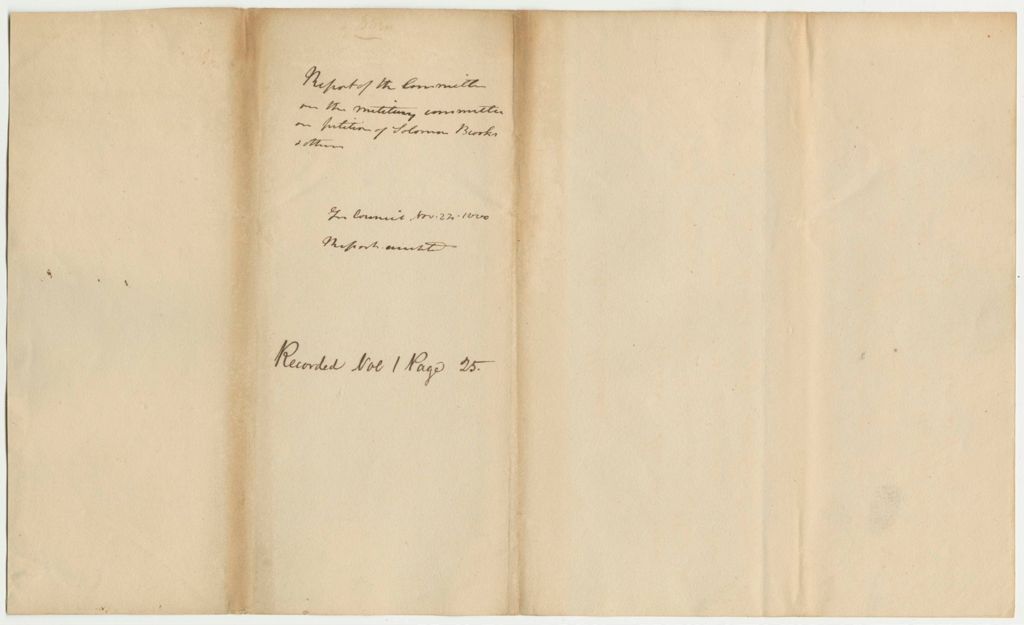 Report of the Committee
on the military committee
on petition of Solomon Brooks
& others
In Council Nov. 22. 1820
Report accepted
Recorded Vol 1 Page 25.